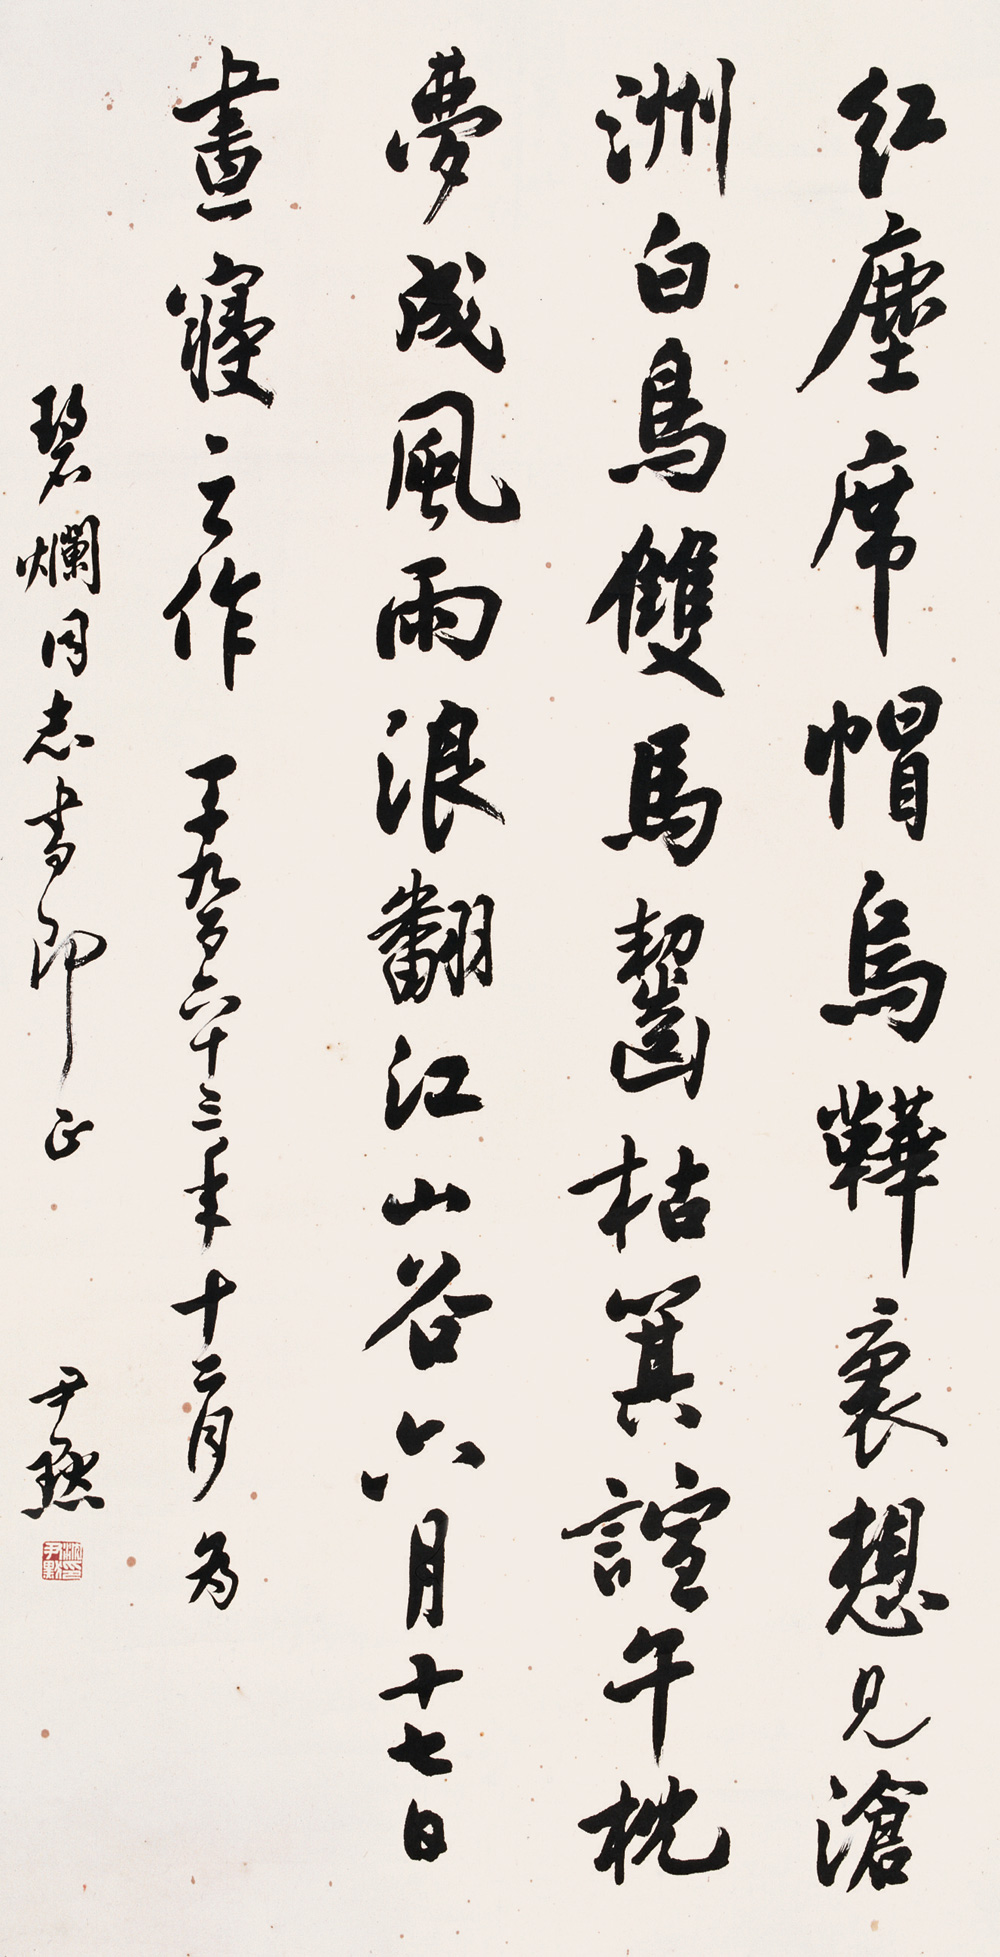 红塵席帽烏鞾裏想見滄
洲白鳥雙馬齧枯萁諠午枕
夢成風雨浪翻江山谷六月十七日
晝寢之作 一千九百六十三年十二月為
碧爛同志書即正 尹默
沈尹默印